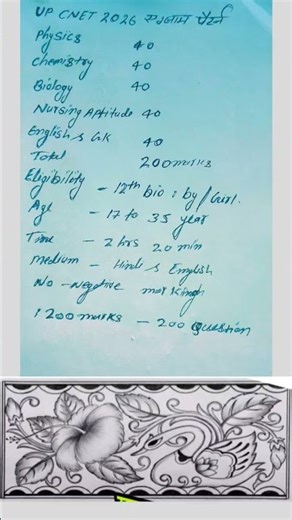 UP CNET 2026 एग्जाम पैटर्न
Physics 40
Chemistry 40
Biology 40
Nursing Aptitude 40
English & GK 40
Total 200 marks
Eligibility - 12th bio : by/Girl.
Age - 17 to 35 year
Time - 2 hrs 20 min
Medium - Hindi & English
No - Negative marking
200 marks - 200 Question